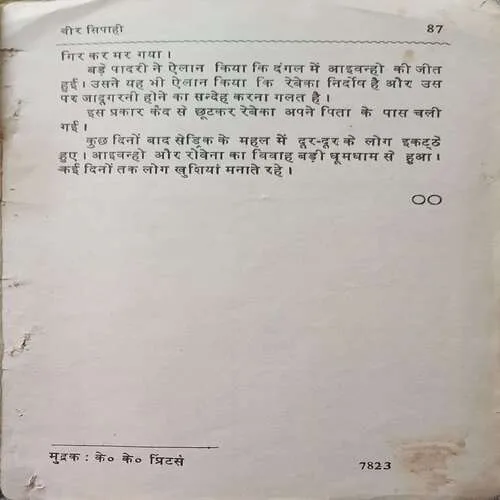 वीर सिपाही 87
गिर कर मर गया ।
बड़े पादरी ने ऐलान किया कि दंगल में आइवन्हो की जीत
हुई । उसने यह भी ऐलान किया कि रेबेका निर्दोष है और उस
पर जादूगरनी होने का सन्देह करना गलत है ।
इस प्रकार कैद से छूटकर रेबेका अपने पिता के पास चली
गई ।
कुछ दिनों बाद सेड्रिक के महल में दूर-दूर के लोग इकट्ठे
हुए । आइवन्हो और रोवेना का विवाह बड़ी धूमधाम से हुआ ।
कई दिनों तक लोग खुशियां मनाते रहे ।
○○
मुद्रक : के० के० प्रिंटर्स 7823